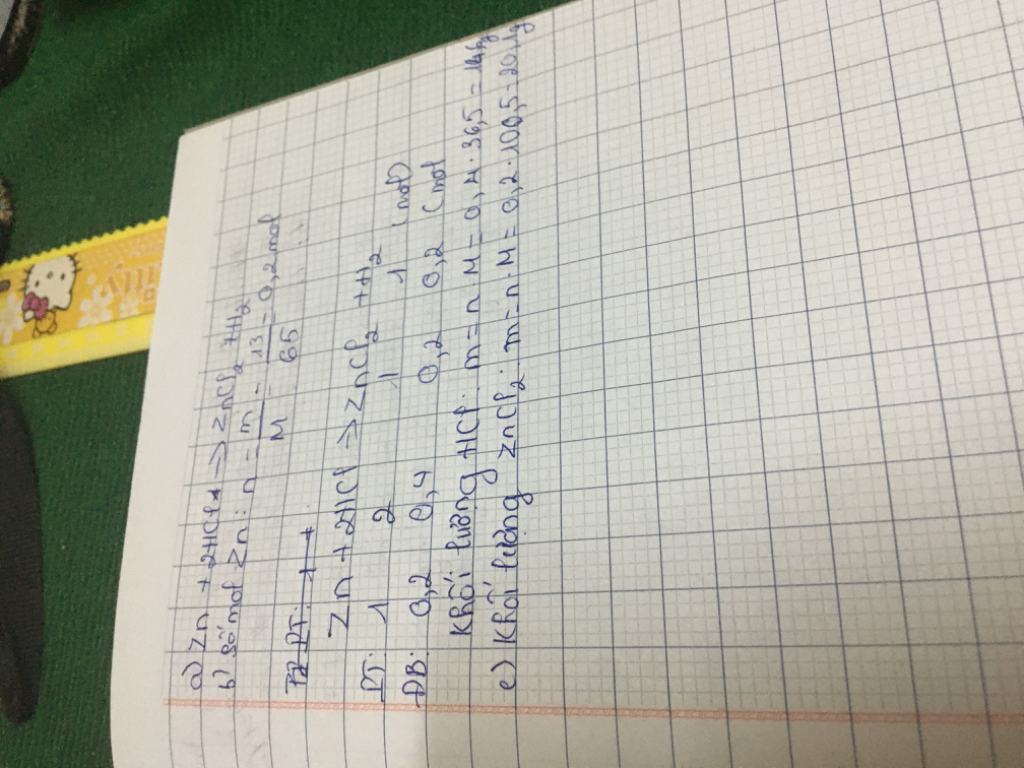 a) Zn + 2HCl → ZnCl2 + H2
b) Số mol Zn: n = m/M = 13/65 = 0,2 mol
PT:
Zn + 2HCl → ZnCl2 + H2
PT: 1 2 1 1 (mol)
ĐB: 0,2 0,4 0,2 0,2 (mol
Khối lường HCl: m = n.M = 0,4.36,5 = 14,6g
c) Khối lường ZnCl2: m = n.M = 0,2.100,5=20,1g